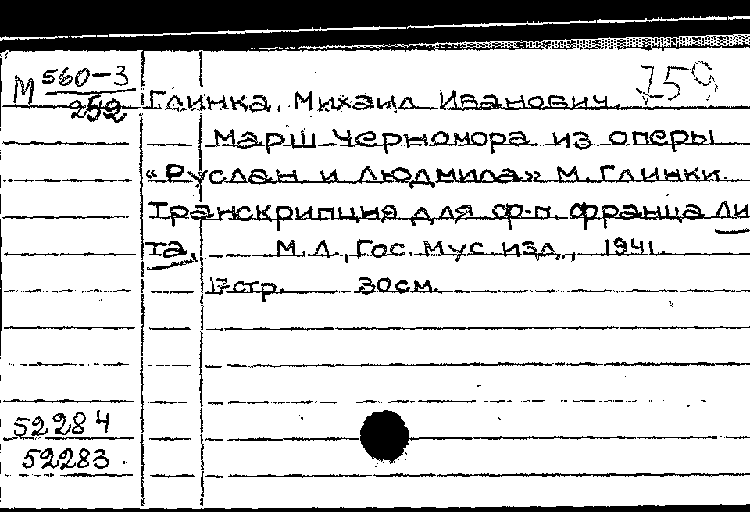 М 560-3
252
759
Глинка, Михаил Иванович.
Марш Черномора из оперы
«Руслан и Людмила» М. Глинки.
Транскрипция для ф-п. Франца Ли
та. М.Л., Гос. муз. изд., 1941.
17 стр. 30 см.
52284
52283.